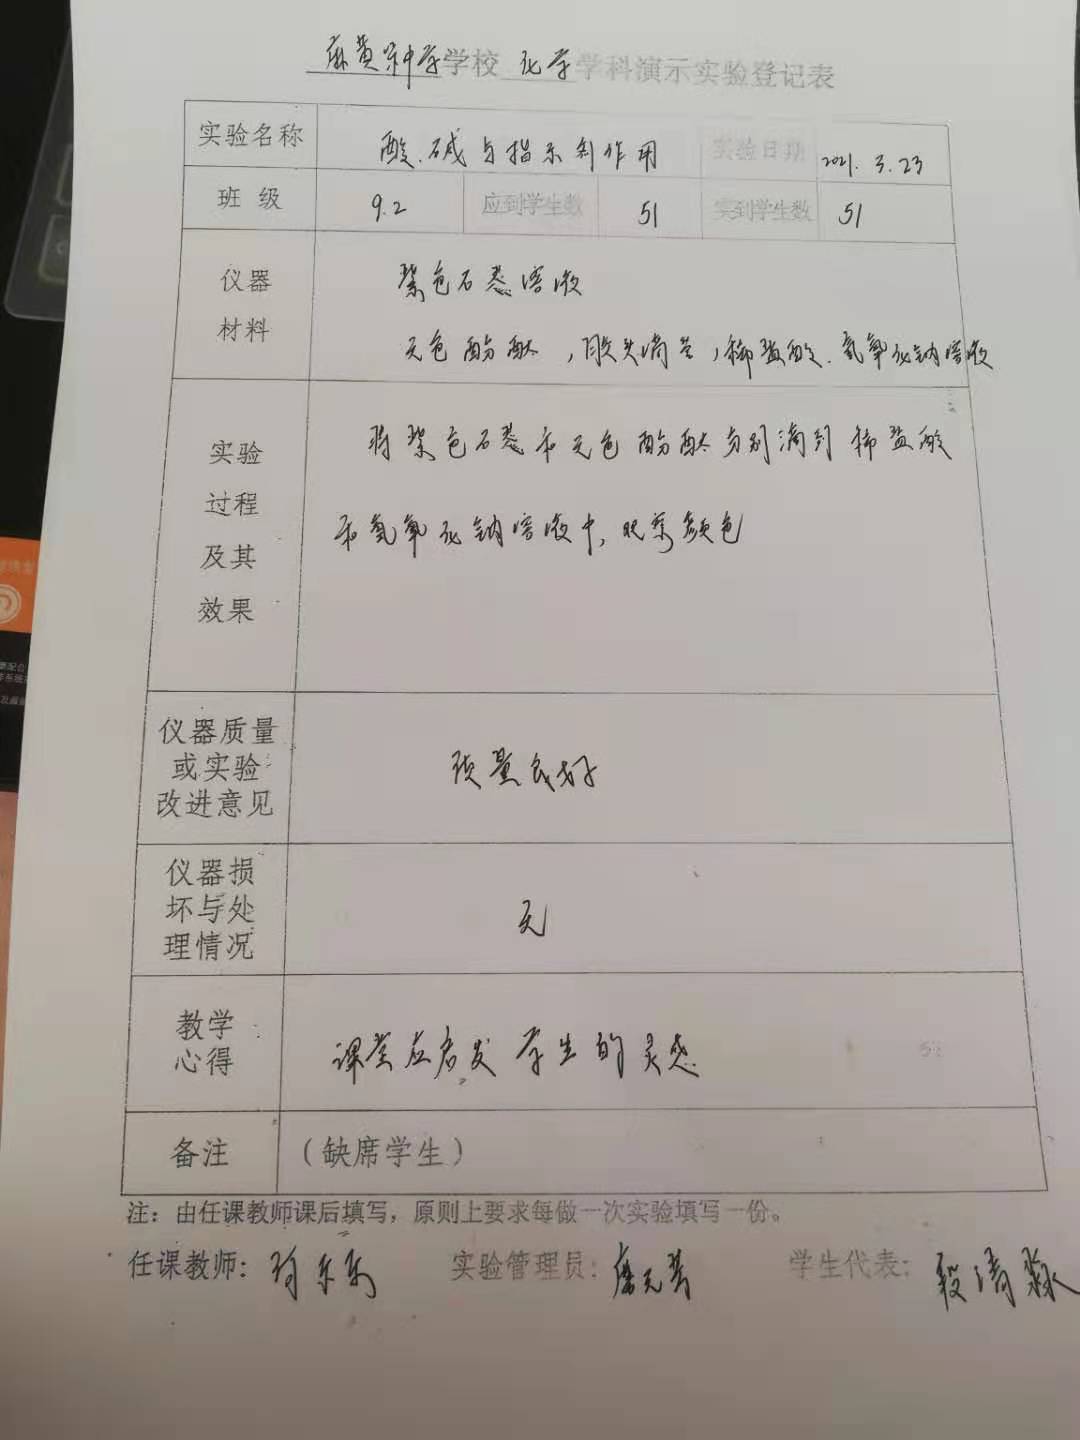 麻黄梁中学学校 化学学科演示实验登记表
实验名称 酸、碱与指示剂作用 实验日期 2021.3.23
班 级 9.2 应到学生数 51 实到学生数 51
仪器
材料
紫色石蕊溶液
无色酚酞,胶头滴管,稀盐酸、氢氧化钠溶液
实验
过程
及其
效果
将紫色石蕊和无色酚酞分别滴到稀盐酸
和氢氧化钠溶液中,观察颜色
仪器质量
或实验
改进意见
质量良好
仪器损
坏与处
理情况
无
教学
心得
课堂应启发学生的灵感
备注 (缺席学生)
注:由任课教师课后填写,原则上要求每做一次实验填写一份。
任课教师: 实验管理员: 学生代表:段清